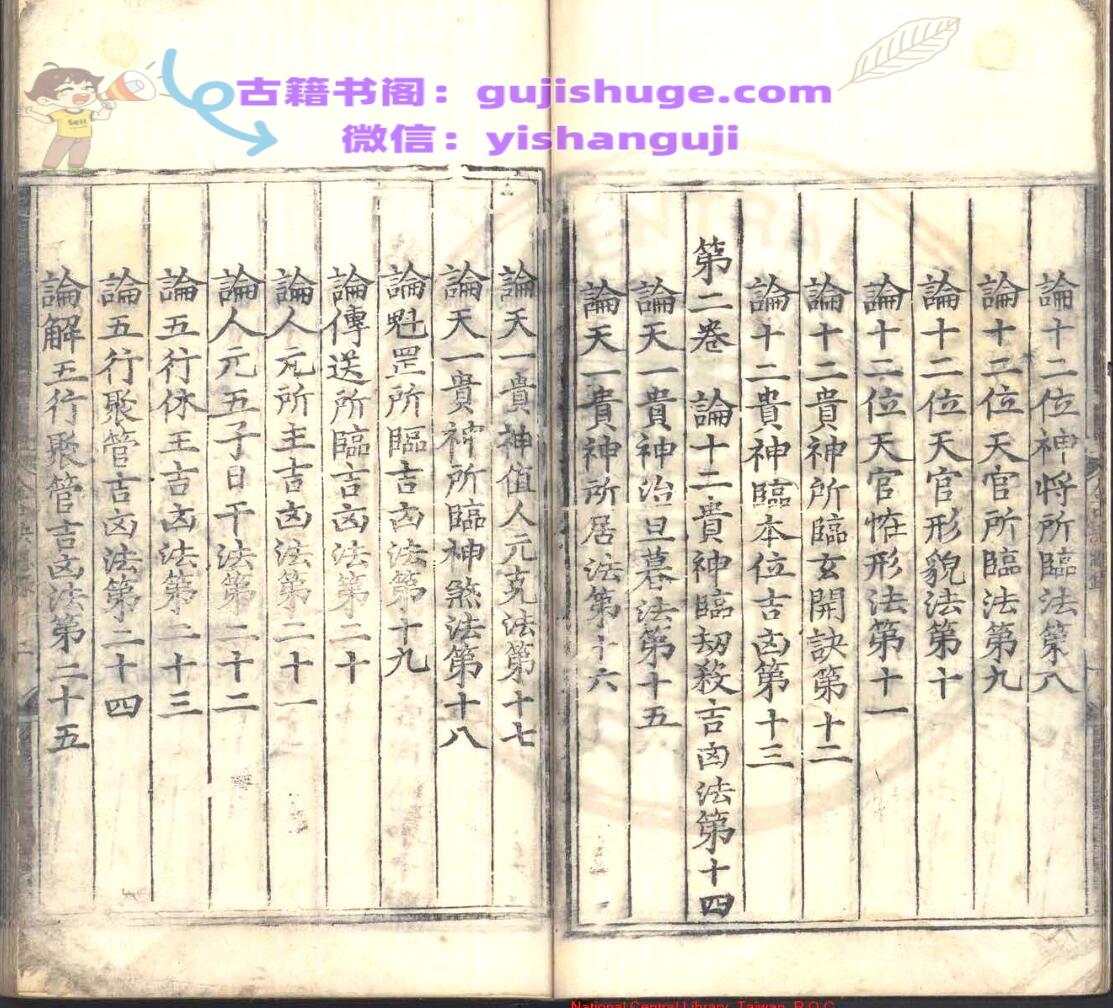 古籍书阁：gujishuge.com
微信：yishanguji
Sell
論十二位神将所臨法第八
論十二位天官所臨法第九
論十二位天官形貌法第十
論十二位天官恠形法第十一
論十二貴神所臨玄開訣第十二
論十二貴神臨本位吉凶第十三
第二卷 論十二貴神臨刧殺吉凶法第十四
論天一貴神治旦暮法第十五
論天一貴神所居法第十六
論天一貴神值人元克法第十七
論天一貴神所臨神煞法第十八
論魁罡所臨吉凶法第十九
論傳送所臨吉凶法第二十
論人元所主吉凶法第二十一
論人元五子日干法第二十二
論五行休王吉凶法第二十三
論五行聚管吉凶法第二十四
論解五行聚管吉凶法第二十五
National Central Library, Taiwan, R.O.C.